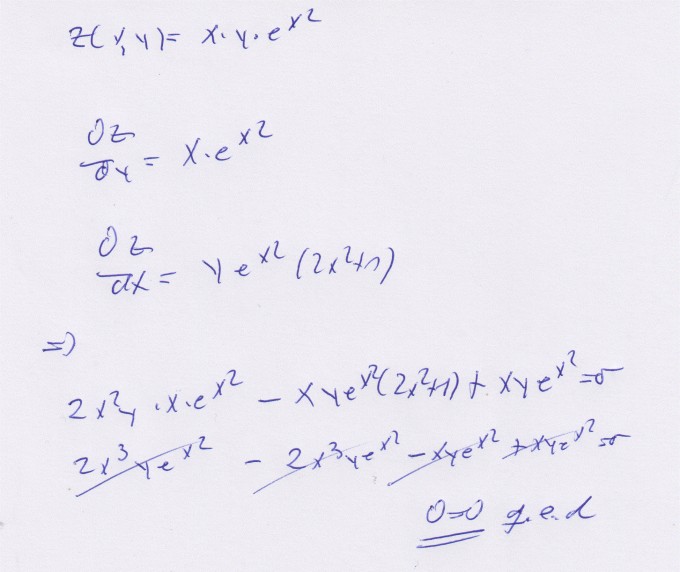 z(x,y)= x·y·e^x²
∂z/∂y = x·e^x²
∂z/∂x = y e^x² (2x²+1)
=>
2x²y·x·e^x² - xye^x²(2x²+1) + xye^x² =0
2x³ye^x² - 2x³ye^x² - xye^x² + xye^x² =0
0=0 q.e.d